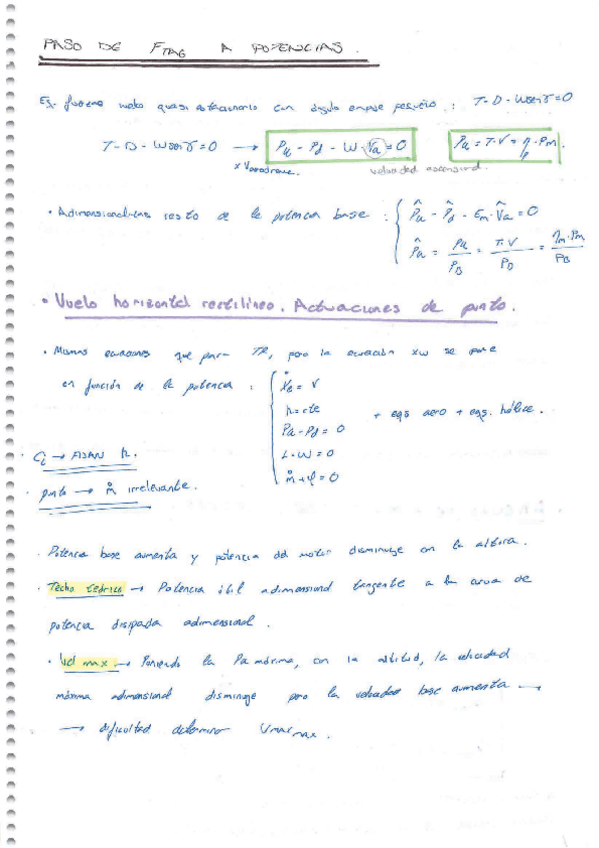 PASO DE F_TAG A POTENCIAS.
Ex. fuerza vuelo quasi estacionario con ángulo empuje pequeño : T-D-Wsenγ=0
T-D-Wsenγ=0 → Pu - Pd - W·Va = 0 Pu = T·V = ηp·Pm.
x Vaeronave. velocidad ascensional.
• Adimensionalizamos resto de la potencia base : P̂u - P̂d - Em·V̂a = 0
P̂u = Pu/PB = T·V/PB = ηm·Pm/PB
• Vuelo horizontal rectilíneo. Actuaciones de punto.
• Mismas ecuaciones que para TR, pero la ecuación xw se pone
en función de la potencia : ẋe = V
h = cte
Pu - Pd = 0
L - W = 0
ṁ + φ = 0
+ eqs aero + eqs. hélice.
Ci → FIJAN h.
punto → ṁ irrelevante.
• Potencia base aumenta y potencia del motor disminuye con la altura.
• Techo teórico → Potencia útil adimensional tangente a la curva de
potencia disipada adimensional.
• Vel max → Poniendo la Pa máxima, con la altitud, la velocidad
máxima adimensional disminuye pero la velocidad base aumenta →
→ dificultad determinar Vmax max.